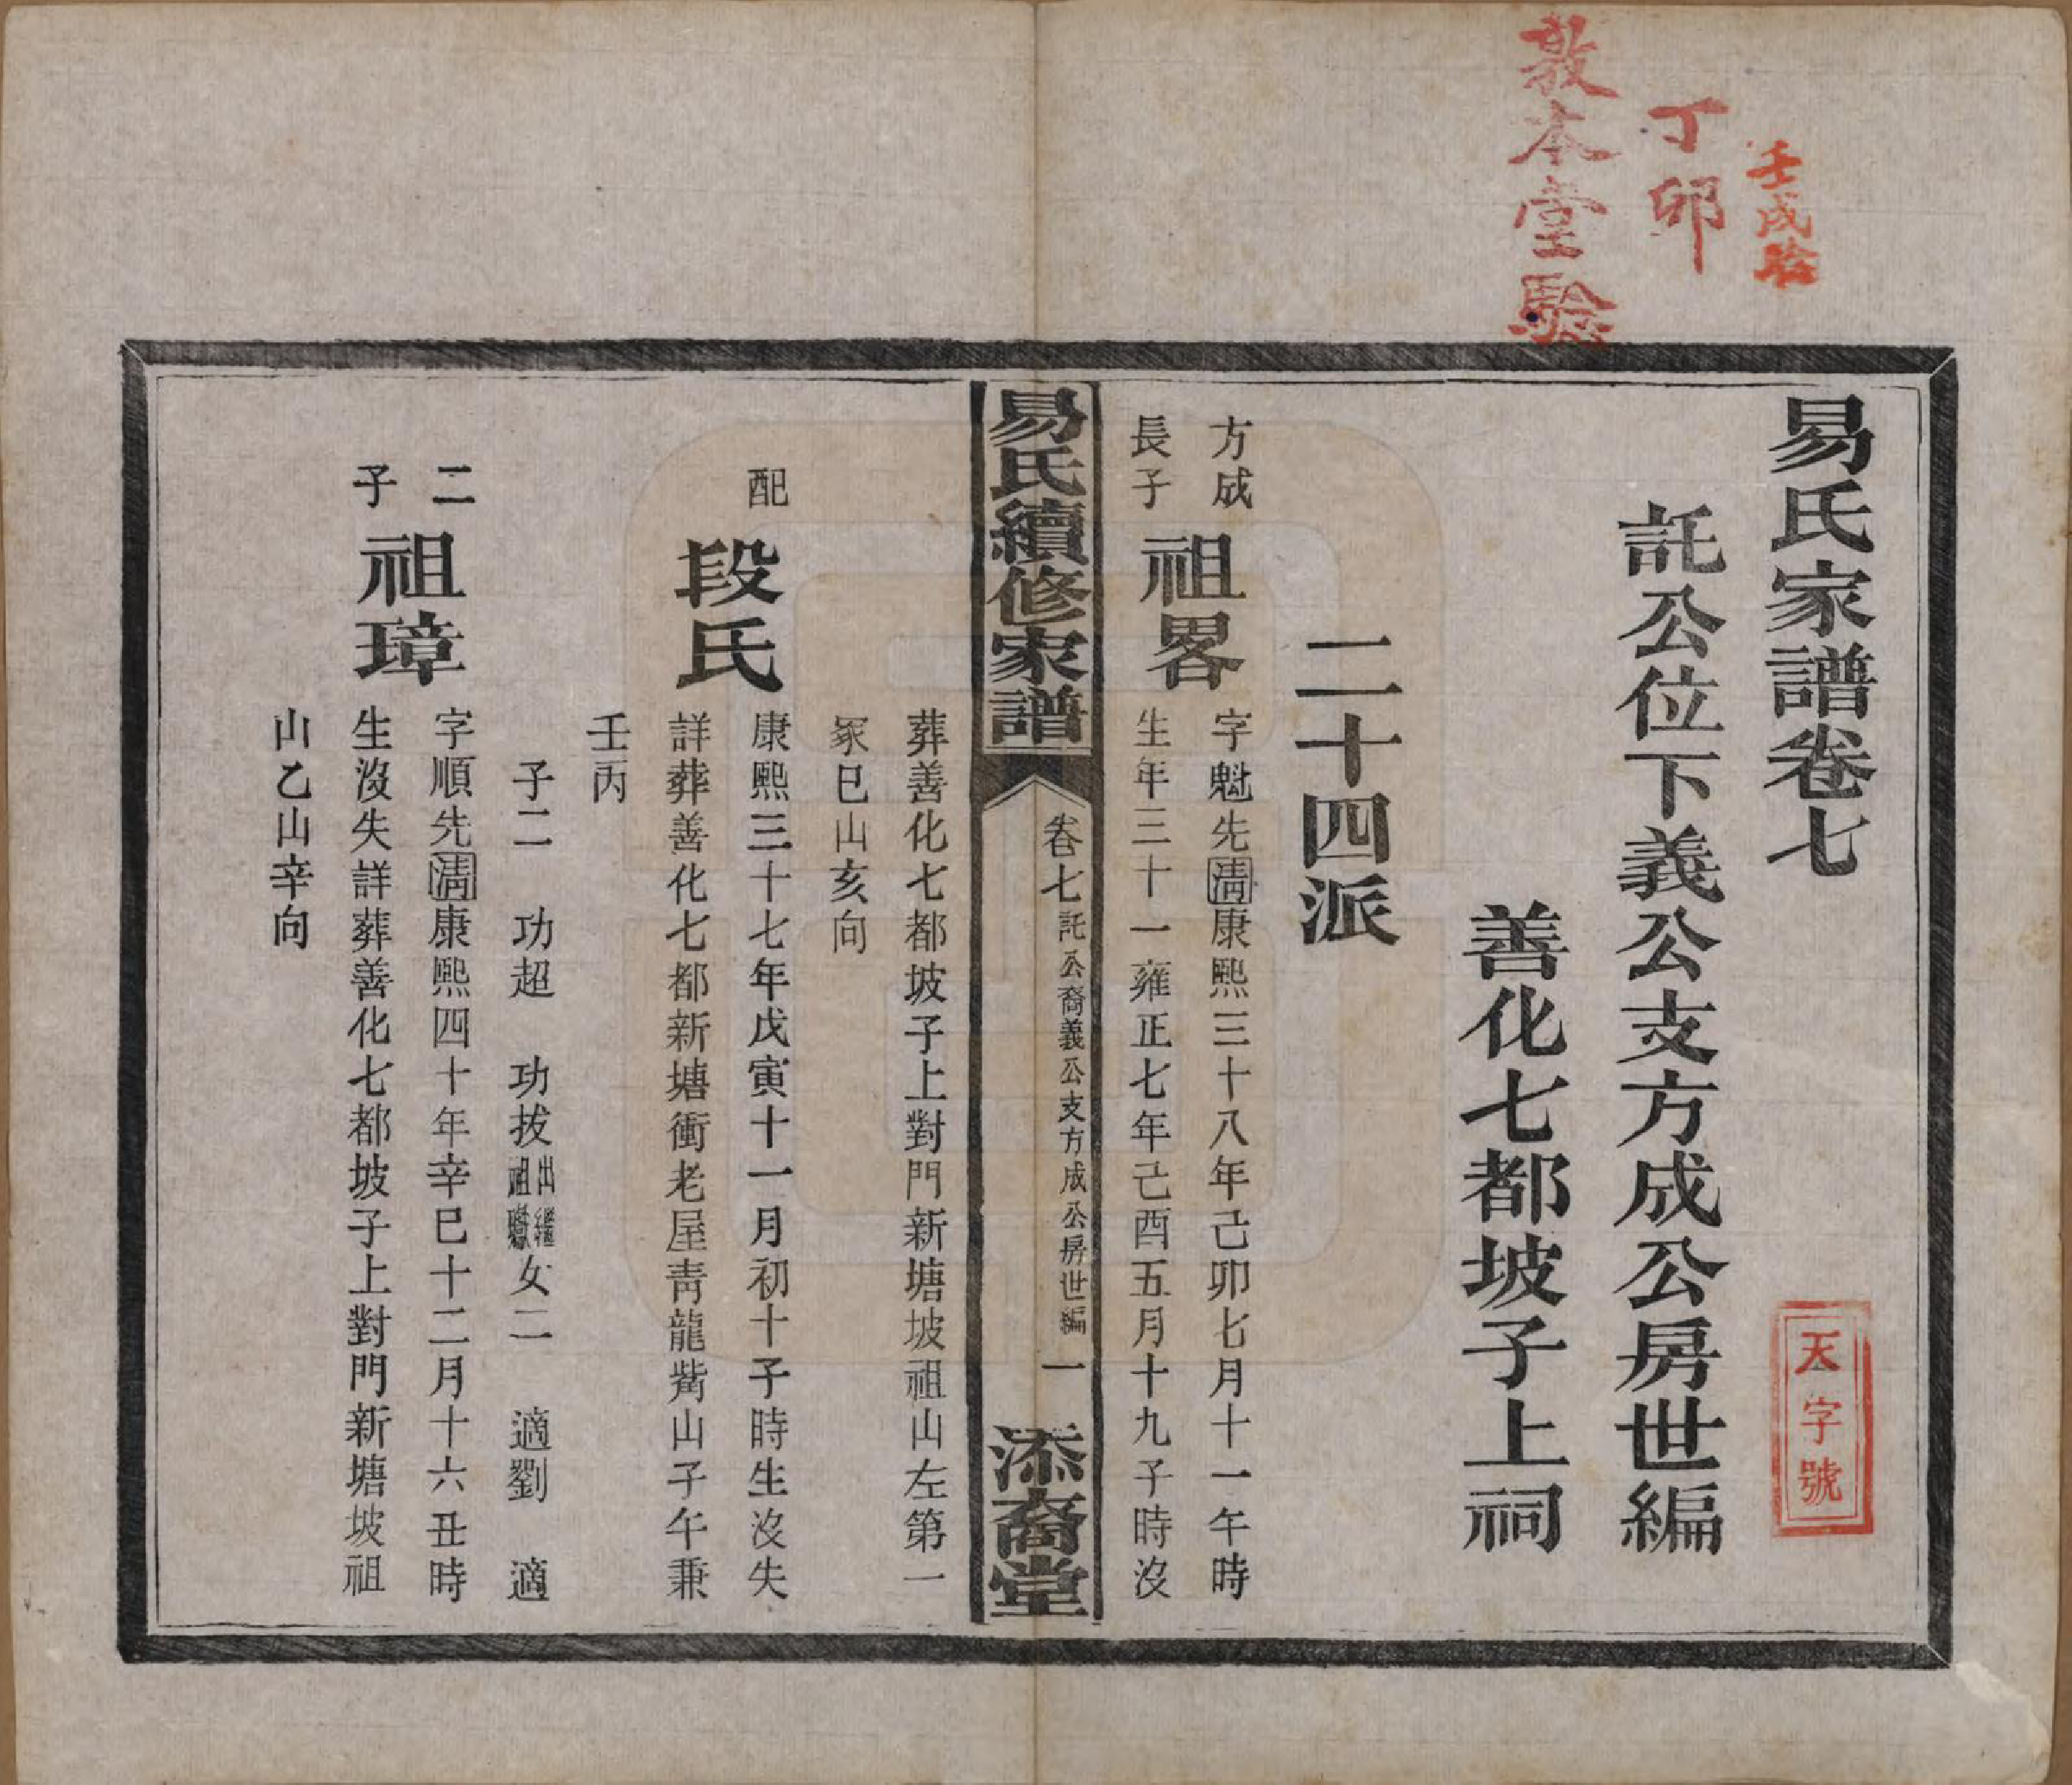 壬戌驗
丁卯
敦本堂驗
易氏家譜卷七
天字號
託公位下義公支方成公房世編
善化七都坡子上祠
二十四派
方成
長子
祖畧
字魁先清康熙三十八年己卯七月十一午時
生年三十一雍正七年己酉五月十九子時沒
易氏續修家譜
卷七
託公裔義公支方成公房世編
一
添裔堂
葬善化七都坡子上對門新塘坡祖山左第一
冢巳山亥向
配
段氏
康熙三十七年戊寅十一月初十子時生沒失
詳葬善化七都新塘衝老屋靑龍觜山子午兼
壬丙
子二 功超 功拔出繼祖 女二 適劉 適
二
子
祖璋
字順先清康熙四十年辛巳十二月十六丑時
生沒失詳葬善化七都坡子上對門新塘坡祖
山乙山辛向